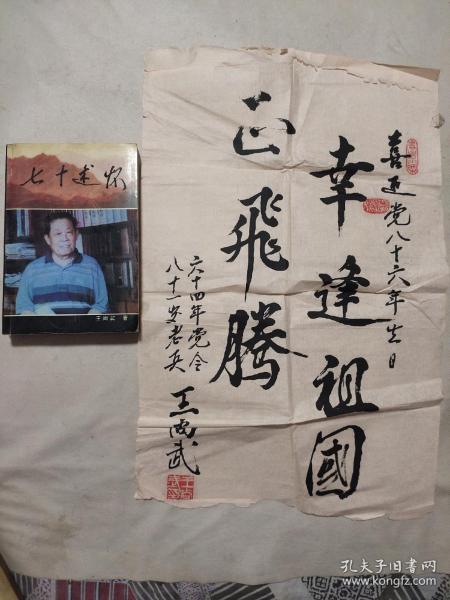 七十述怀
喜迎党八十六年生日
幸逢祖國
正飛騰
六十四年党令
八十一岁老兵
孔夫子旧书网
www.kongfz.com